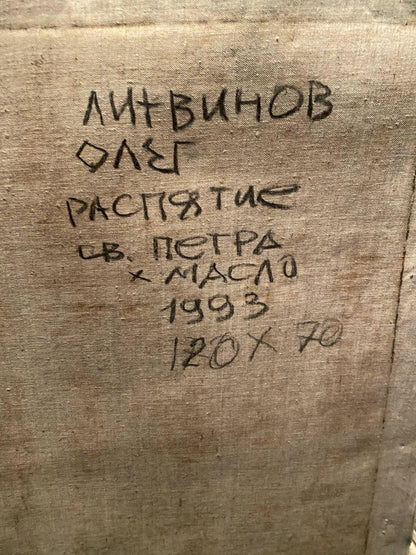 ЛИТВИНОВ
ОЛЕГ
РАСПЯТИЕ
СВ. ПЕТРА
х МАСЛО
1993
120 X 70